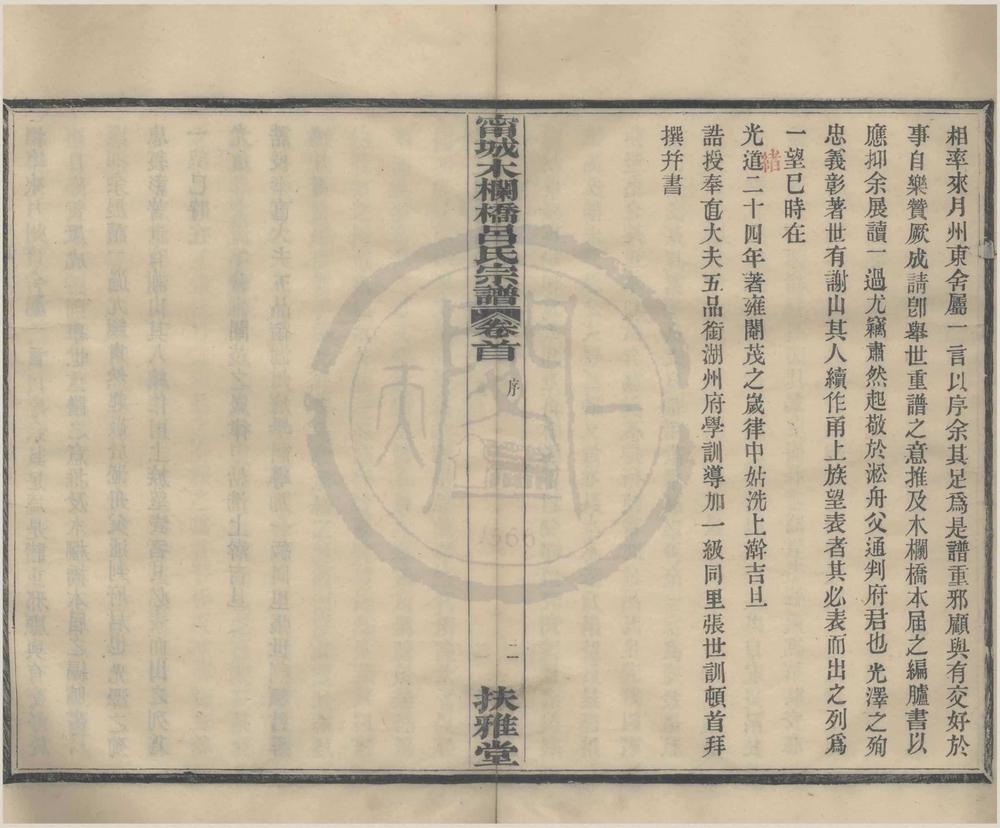 相率來月州東舍屬一言以序余其足爲是譜重邪顧與有交好於
事自樂贊厥成請卽舉世重譜之意推及木欄橋本届之編臚書以
應抑余展讀一過尤竊肅然起敬於淞舟父通判府君也光澤之殉
忠義彰著世有謝山其人續作甬上族望表者其必表而出之列爲
一望已時在
光道二十四年著雍閹茂之嵗律中姑洗上澣吉旦
緒
誥授奉直大夫五品銜湖州府學訓導加一級同里張世訓頓首拜
撰幷書
甯城木欄橋呂氏宗譜 卷首
序
二
扶雅堂